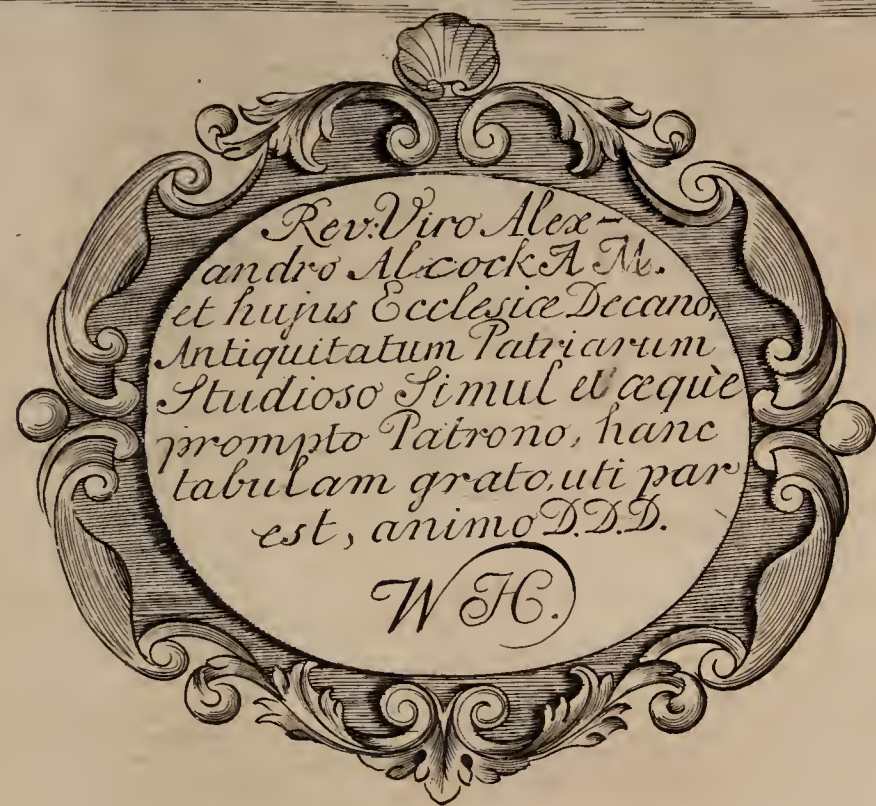 Rev: Viro Alex-
andro Alcock A M.
et hujus Ecclesiæ Decano,
Antiquitatum Patriarum
Studioso Simul et æquè
prompto Patrono, hanc
tabulam grato, uti par
est, animo D.D.D.
W H.